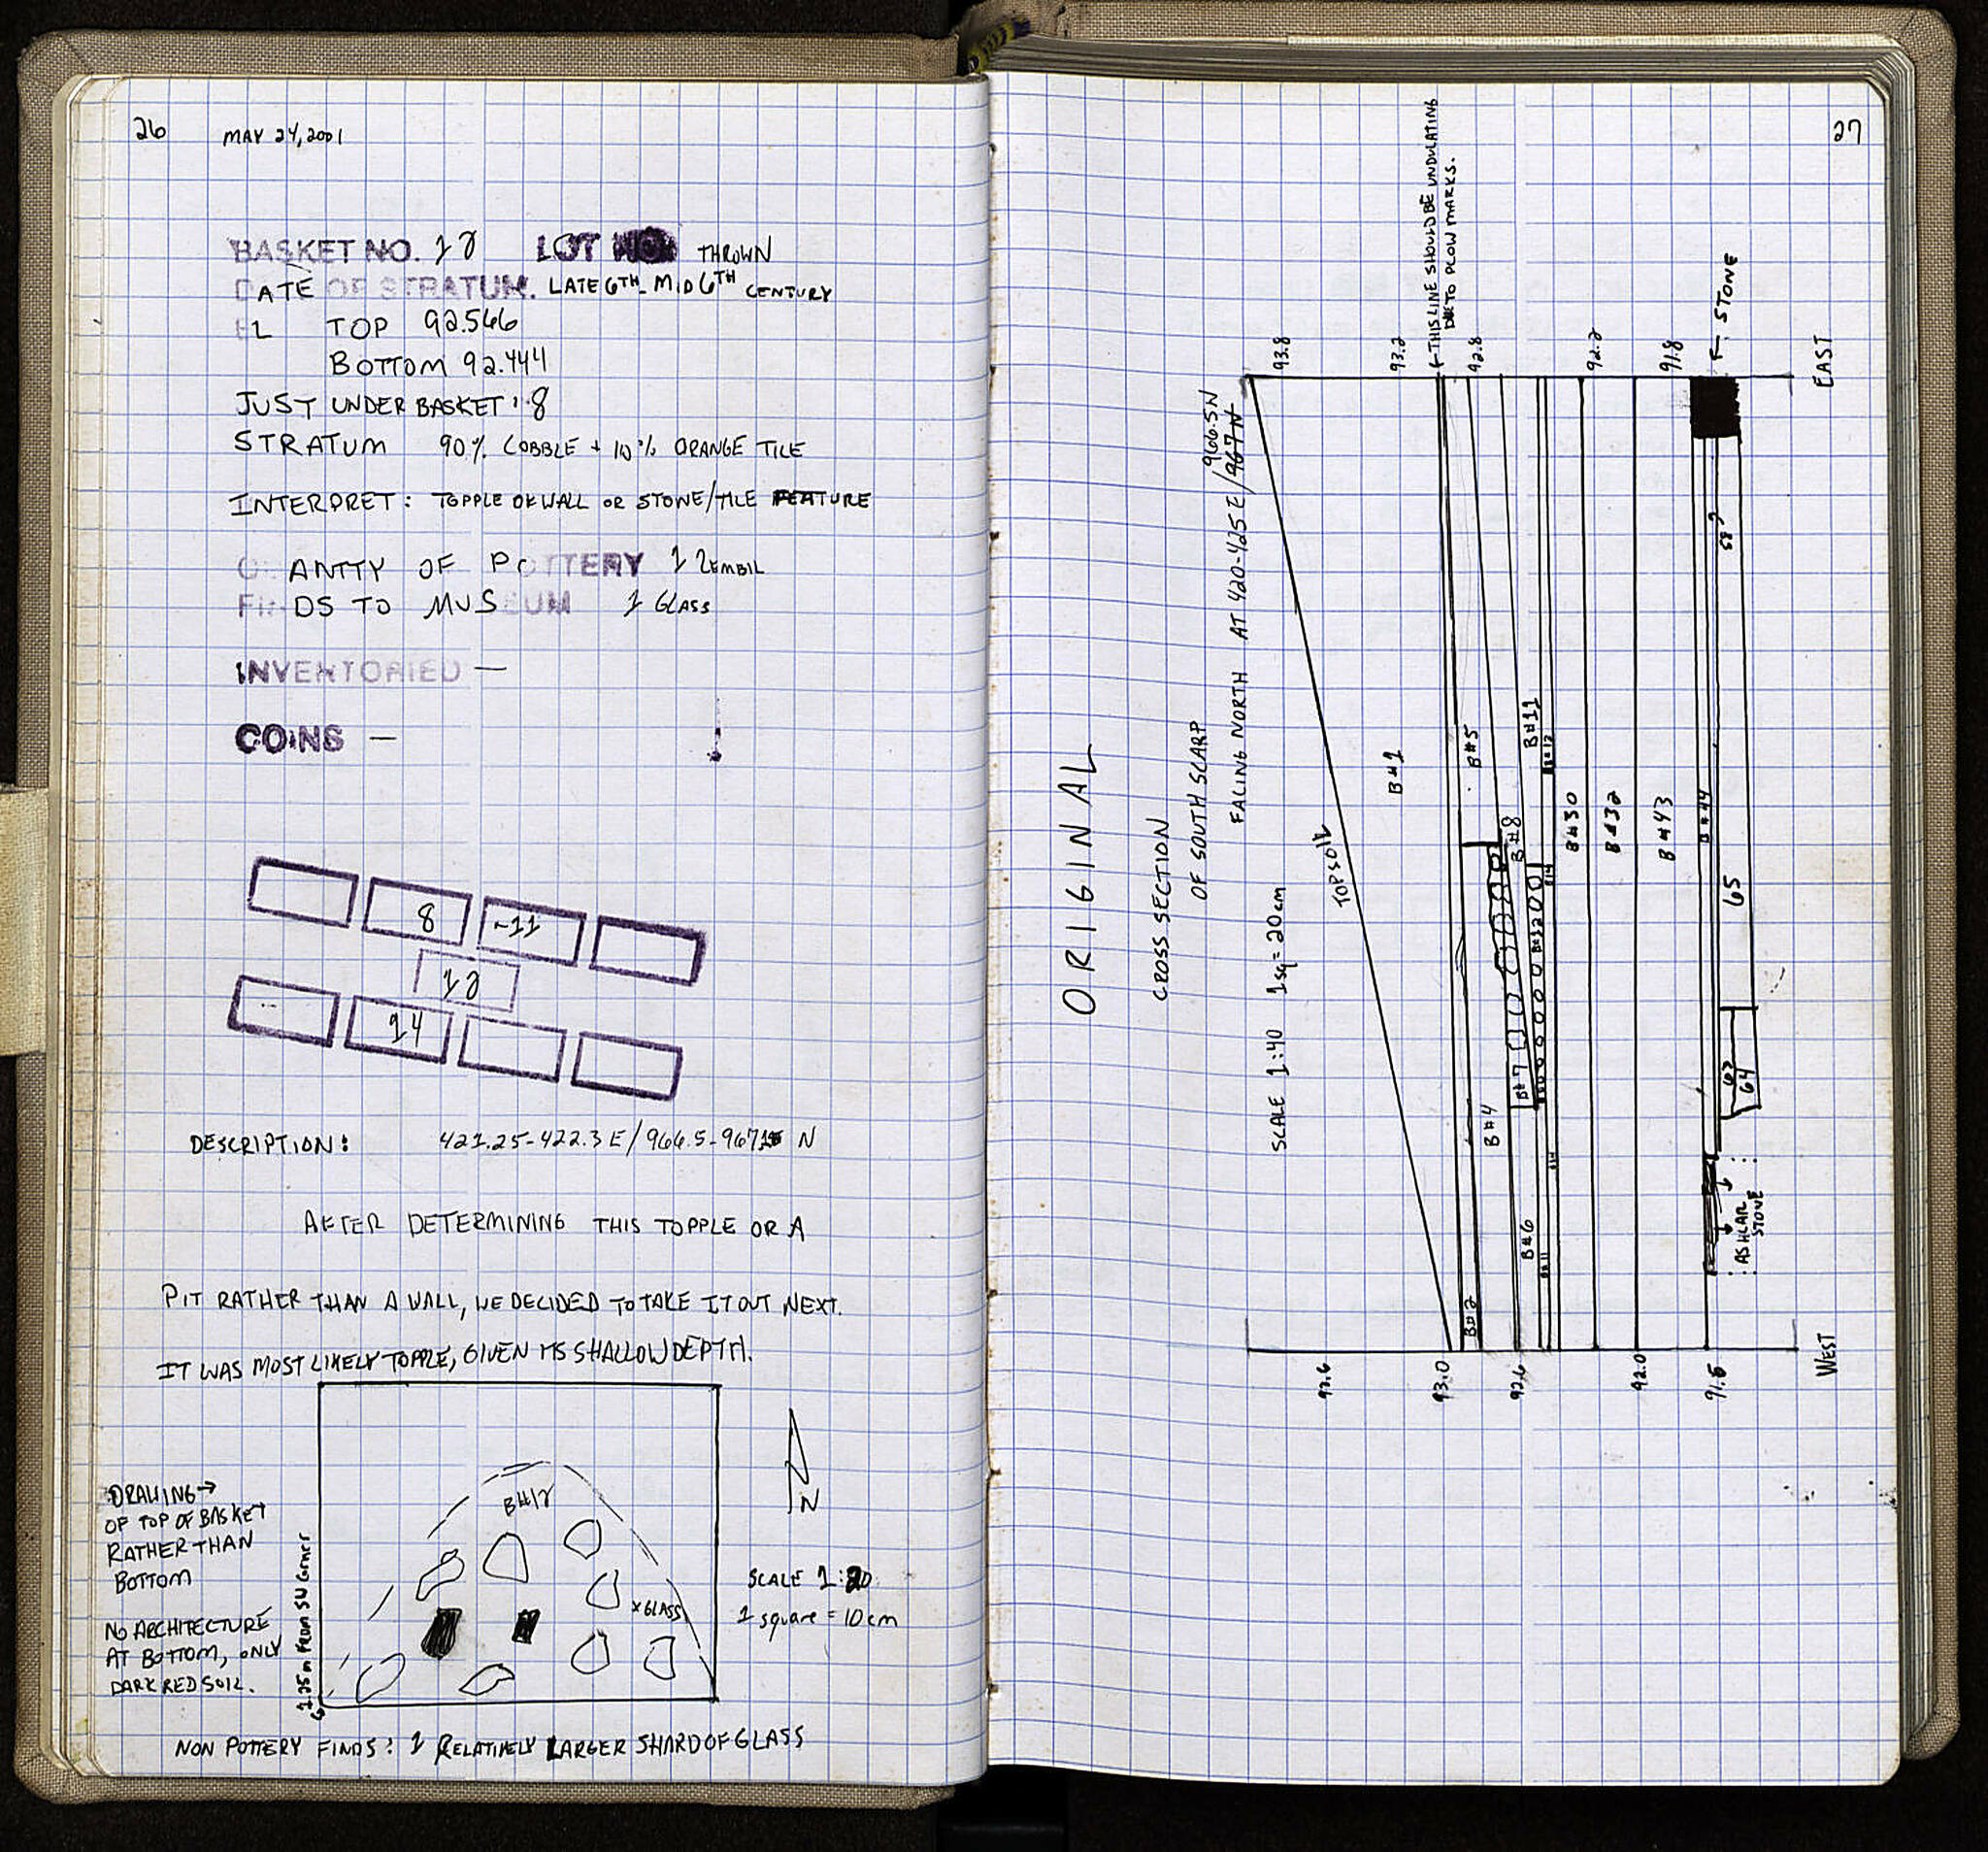 26 MAY 24, 2001
BASKET NO. 12 LOT THROWN
DATE OF STRATUM. LATE 6TH - MID 6TH CENTURY
EL TOP 92.566
BOTTOM 92.444
JUST UNDER BASKET: 8
STRATUM 90% COBBLE + 10% ORANGE TILE
INTERPRET: TOPPLE OF WALL OR STONE/TILE FEATURE
QUANTITY OF POTTERY 1 ZEMBIL
FINDS TO MUSEUM 1 GLASS
INVENTORIED —
COINS —
8 -11
12
14
DESCRIPTION: 421.25-422.3 E/966.5- N
AFTER DETERMINING THIS TOPPLE OR A
PIT RATHER THAN A WALL, WE DECIDED TO TAKE IT OUT NEXT.
IT WAS MOST LIKELY TOPPLE, GIVEN ITS SHALLOW DEPTH.
DRAWING →
OF TOP OF BASKET
RATHER THAN
BOTTOM
NO ARCHITECTURE
AT BOTTOM, ONLY
DARK RED SOIL.
1.25m FROM SW CORNER
B#12
x GLASS
N
SCALE 1:20
1 square = 10cm
NON POTTERY FINDS: 1 RELATIVELY LARGER SHARD OF GLASS
27
ORIGINAL
CROSS SECTION
OF SOUTH SCARP
FACING NORTH AT 420-425E/967N
966.5N
SCALE 1:40 1sq=20cm
TOPSOIL
93.8
93.2
← THIS LINE SHOULD BE UNDULATING
DUE TO PLOW MARKS.
92.8
92.2
91.8
← STONE
EAST
B#1
B#5
B#11
B#12
B#8
B#30
B#32
B#43
B#44
58?
65
B#7
B#12
B#4
63
64
B#6
B#2
ASHLAR
STONE
93.0
92.6
92.0
WEST